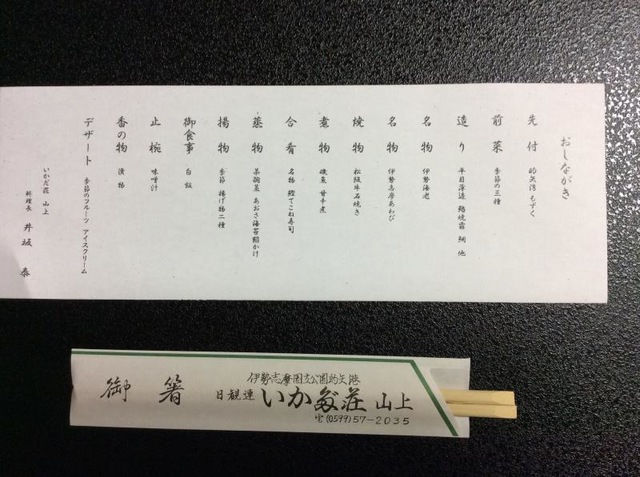 おしながき
先付 的矢湾 もずく
前菜 季節の三種
造り 平目薄造 鮑焼霜 鯛 他
名物 伊勢海老
名物 伊勢志摩あわび
焼物 松阪牛石焼き
煮物 磯魚 甘辛煮
合肴 名物 鰹てこね寿司
蒸物 茶碗蒸 あおさ海苔餡かけ
揚物 季節 揚げ物二種
御食事 白飯
止椀 味噌汁
香の物 漬物
デザート 季節のフルーツ アイスクリーム
いかだ荘 山上
料理長 井坂 泰
御箸
伊勢志摩国立公園的矢港
日観連 いかだ荘 山上
☎(0599)57-2035